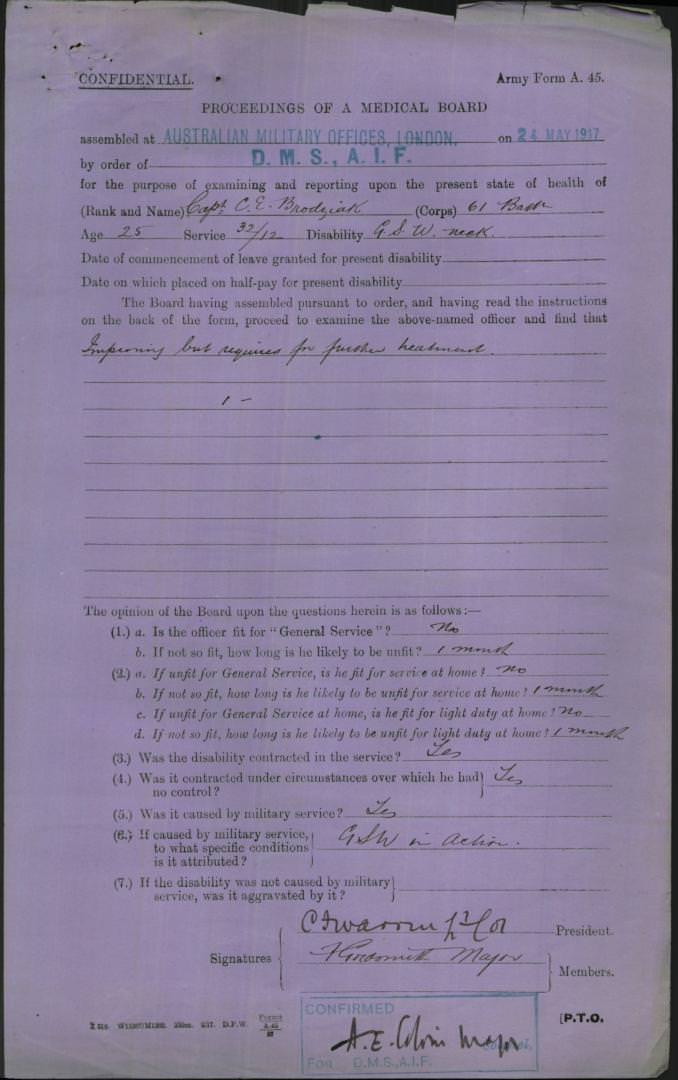 CONFIDENTIAL.
Army Form A. 45.
PROCEEDINGS OF A MEDICAL BOARD
assembled at AUSTRALIAN MILITARY OFFICES, LONDON. on 24 MAY 1917
by order of D. M. S., A. I. F.
for the purpose of examining and reporting upon the present state of health of
(Rank and Name) Capt C. E. Brodziak (Corps) 61 Battn
Age 25 Service 32/12 Disability G. S. W. neck.
Date of commencement of leave granted for present disability
Date on which placed on half-pay for present disability
The Board having assembled pursuant to order, and having read the instructions
on the back of the form, proceed to examine the above-named officer and find that
Improving but requires further treatment.
1 -
The opinion of the Board upon the questions herein is as follows:—
(1.) a. Is the officer fit for "General Service"? No
b. If not so fit, how long is he likely to be unfit? 1 month
(2.) a. If unfit for General Service, is he fit for service at home? No
b. If not so fit, how long is he likely to be unfit for service at home? 1 month
c. If unfit for General Service at home, is he fit for light duty at home? No
d. If not so fit, how long is he likely to be unfit for light duty at home? 1 month
(3.) Was the disability contracted in the service? Yes
(4.) Was it contracted under circumstances over which he had Yes
no control?
(5.) Was it caused by military service? Yes
(6.) If caused by military service, GSW in action.
to what specific conditions
is it attributed?
(7.) If the disability was not caused by military
service, was it aggravated by it?
Lt Col President.
Signatures Major
Members.
CONFIRMED
A. E. Colvin Major
FOR D.M.S., A.I.F.
[P.T.O.
WIDECOMBE. D.P.W. Forms A.45